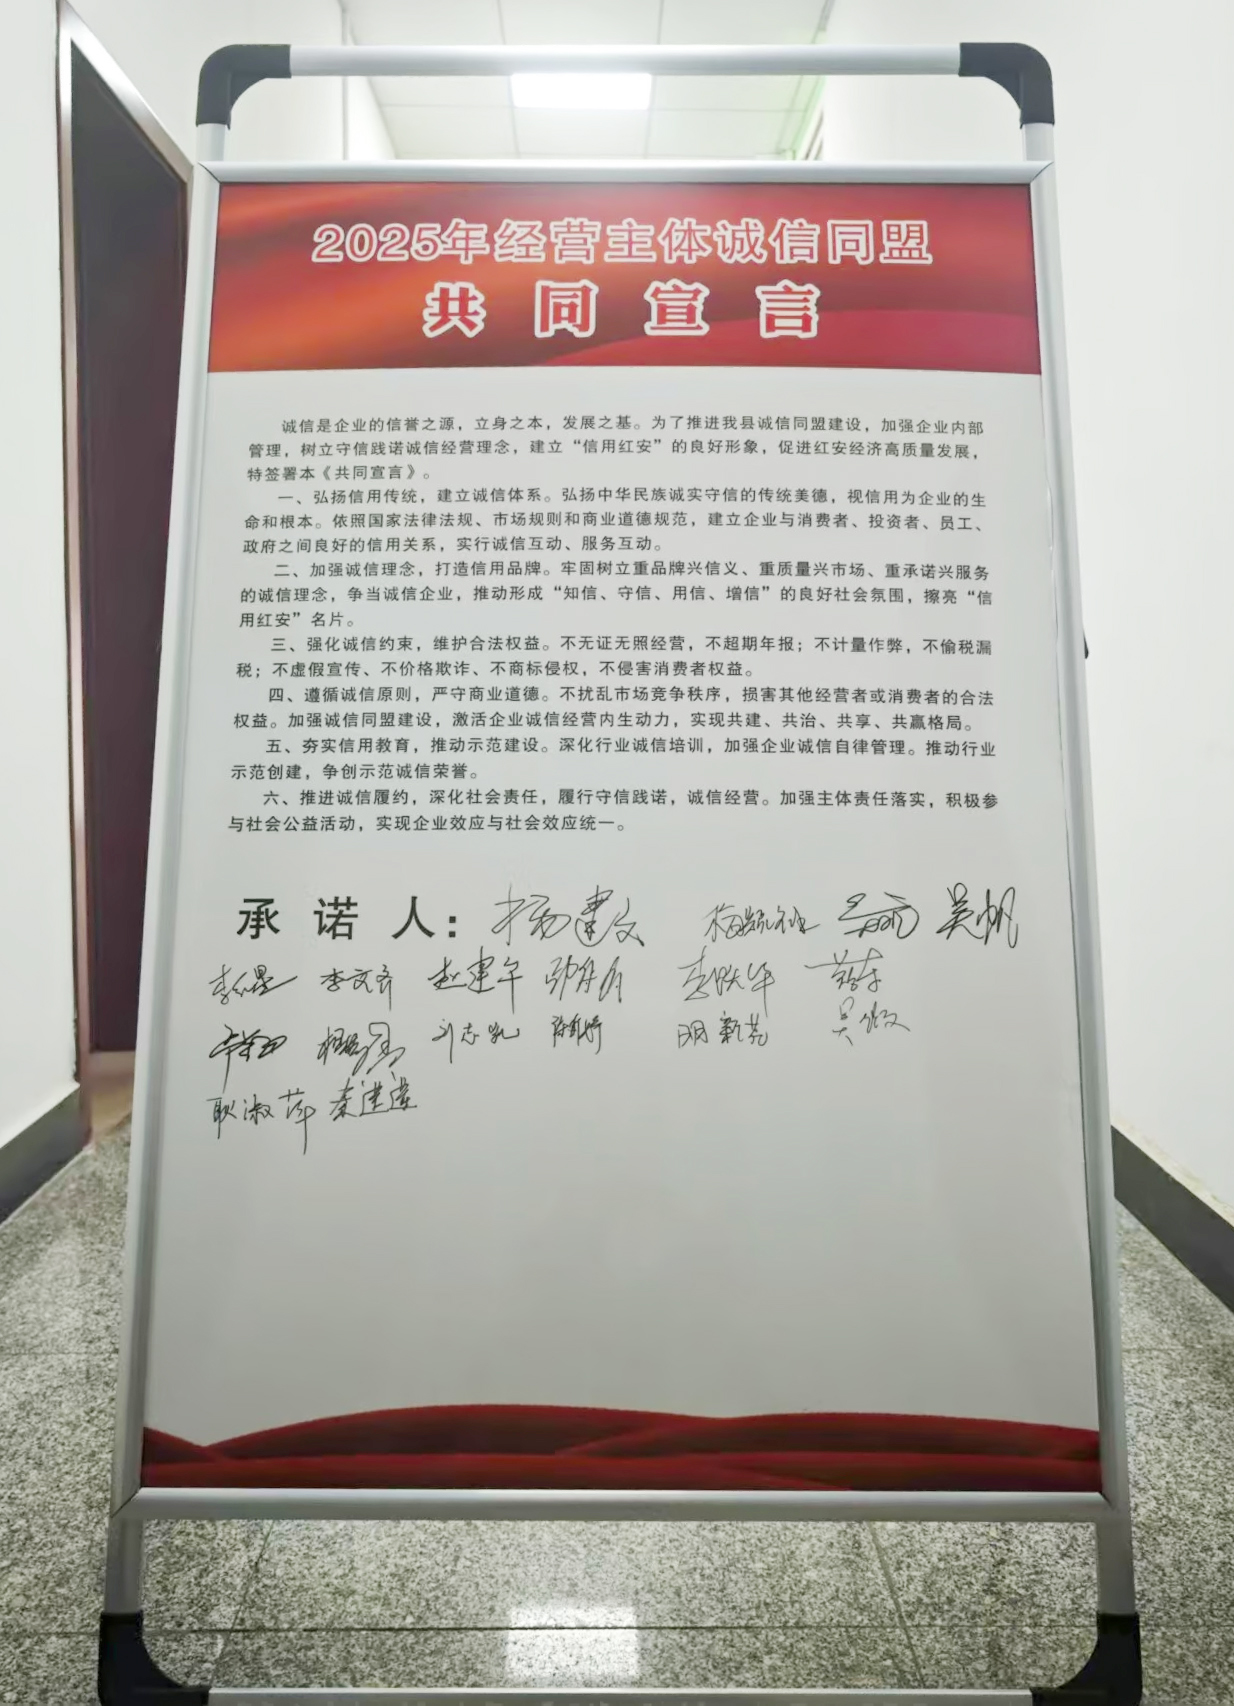 2025年经营主体诚信同盟
共同宣言
诚信是企业的信誉之源，立身之本，发展之基。为了推进我县诚信同盟建设，加强企业内部
管理，树立守信践诺诚信经营理念，建立“信用红安”的良好形象，促进红安经济高质量发展，
特签署本《共同宣言》。
一、弘扬信用传统，建立诚信体系。弘扬中华民族诚实守信的传统美德，视信用为企业的生
命和根本。依照国家法律法规、市场规则和商业道德规范，建立企业与消费者、投资者、员工、
政府之间良好的信用关系，实行诚信互动、服务互动。
二、加强诚信理念，打造信用品牌。牢固树立重品牌兴信义、重质量兴市场、重承诺兴服务
的诚信理念，争当诚信企业，推动形成“知信、守信、用信、增信”的良好社会氛围，擦亮“信
用红安”名片。
三、强化诚信约束，维护合法权益。不无证无照经营，不超期年报；不计量作弊，不偷税漏
税；不虚假宣传、不价格欺诈、不商标侵权，不侵害消费者权益。
四、遵循诚信原则，严守商业道德。不扰乱市场竞争秩序，损害其他经营者或消费者的合法
权益。加强诚信同盟建设，激活企业诚信经营内生动力，实现共建、共治、共享、共赢格局。
五、夯实信用教育，推动示范建设。深化行业诚信培训，加强企业诚信自律管理。推动行业
示范创建，争创示范诚信荣誉。
六、推进诚信履约，深化社会责任，履行守信践诺，诚信经营。加强主体责任落实，积极参
与社会公益活动，实现企业效应与社会效应统一。
承诺人：杨建文 吴帆
李文齐 赵建午 李跃华
刘志凯
耿淑萍 秦进